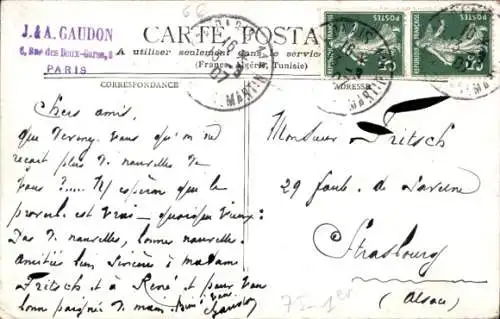 J. & A. GAUDON
6, Rue des Deux-Gares, 6
PARIS
CARTE POSTALE
A utiliser seulement dans le service
(France, Algérie, Tunisie)
CORRESPONDANCE
ADRESSE
Chers amis,
que devenez vous qu'on ne
reçoit plus de nouvelles de
vous ?..... espérons que le
proverbe est vrai - quoique vieux:
Pas de nouvelles, bonnes nouvelles.
Amitiés bien sincères à madame
Fritsch et à René et pour vous
bonne poignée de main.
Gaudon
Monsieur Fritsch
29 Faub. de Saverne
Strasbourg
(Alsace)
75-1er